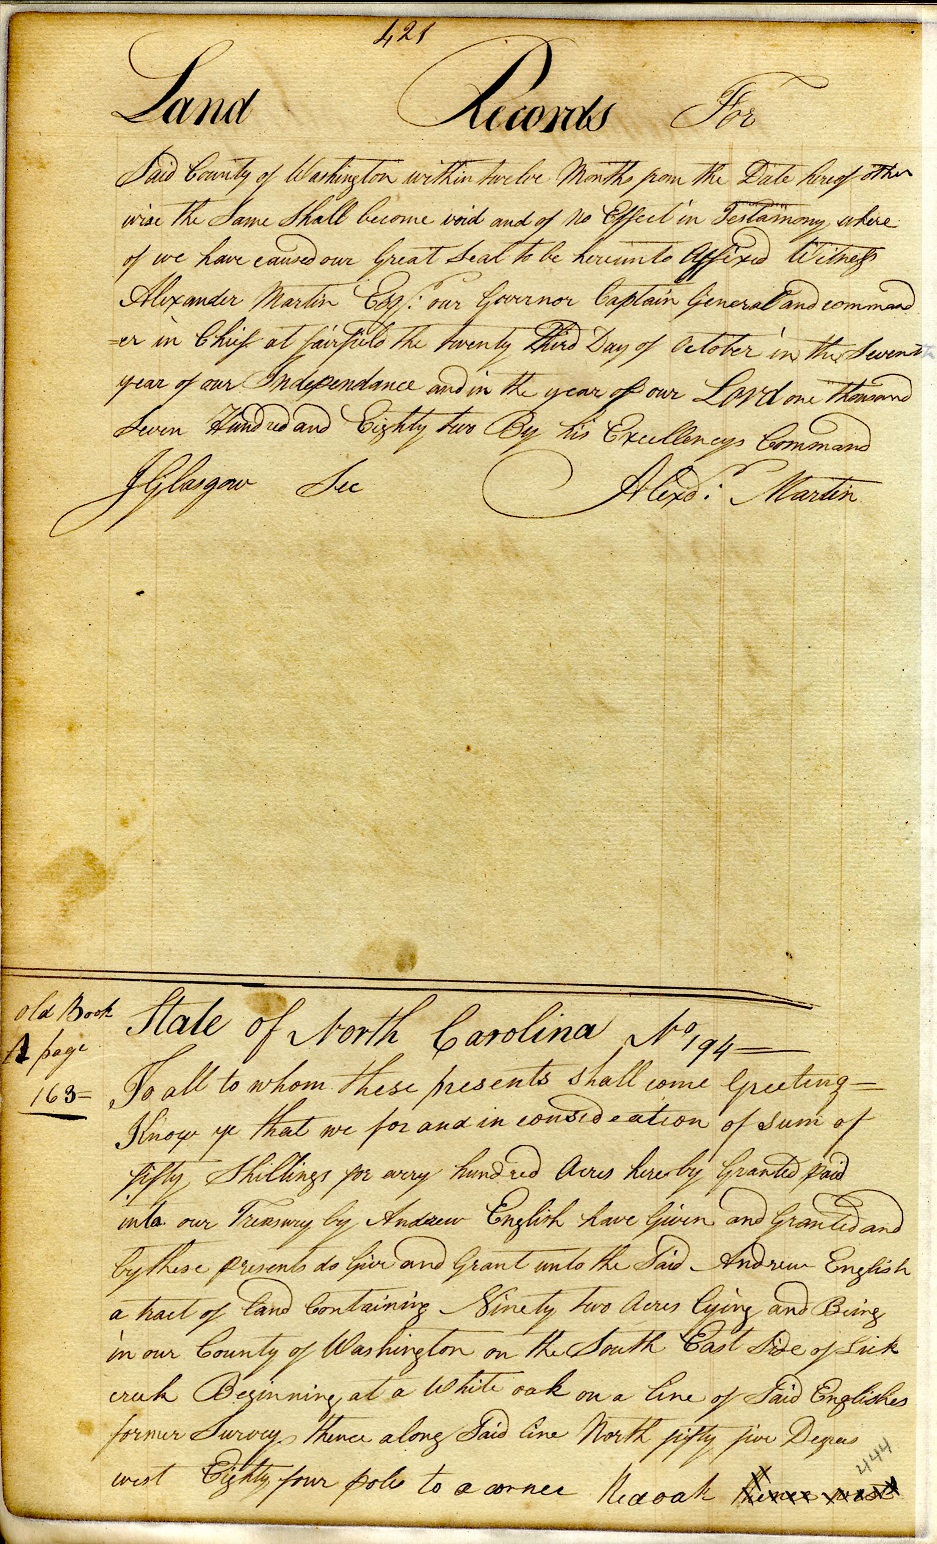 421
Land Records For
Said County of Washington within twelve Months from the Date hereof other
wise the Same Shall become void and of no Effect in Testamony where
of we have caused our Great Seal to be hereunto Affixed Witness
Alexander Martin Esqr. our Governor Captain General and command
=er in Chief at fairfield the twenty Third Day of October in the Seventh
year of our Independance and in the year of our Lord one thousand
Seven Hundred and Eighty two By his Excellencys Command
J Glasgow Sec Alexdr. Martin
old Book
A page
163=
State of North Carolina No 194=
To all to whom these presents shall come Greeting=
Know ye that we for and in consideation of Sum of
fifty Shillings for evry hundred Acres hereby Granted paid
into our Treasury by Andrew English have Given and Granted and
by these presents do Give and Grant unto the Said Andrew English
a tract of Land Containing Ninety two Acres lying and Being
in our County of Washington on the South East Side of Lick
creek Beginning at a White oak on a line of Said Englishes
former Survey thence along Said line North fifty five Degrees
west Eighty four poles to a corner Redoak
444